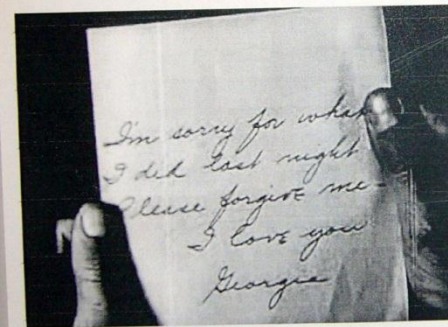 I'm sorry for what
I did last night
Please forgive me-
I love you
Georgia